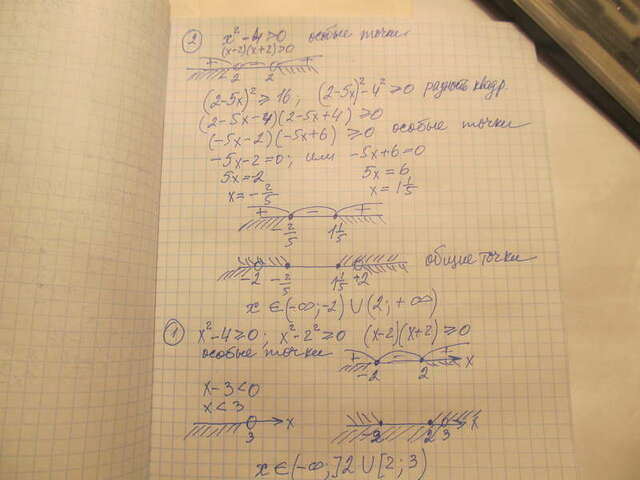 ② x² - 4 > 0 особые точки
(x-2)(x+2) > 0
+ - +
-2 2
(2-5x)² ≥ 16; (2-5x)² - 4² ≥ 0 разность квадр.
(2-5x-4)(2-5x+4) ≥ 0
(-5x-2)(-5x+6) ≥ 0 особые точки
-5x-2=0; или -5x+6=0
5x=-2 5x=6
x=-2/5 x=1 1/5
+ - +
-2/5 1 1/5
-2 -2/5 1 1/5 +2 общие точки
x ∈ (-∞; -2) ∪ (2; +∞)
① x²-4≥0; x²-2²≥0 (x-2)(x+2)≥0
особые точки + - +
-2 2 x
x-3<0
x<3
3 x -2 2 3 x
x ∈ (-∞; ]2 ∪ [2; 3)